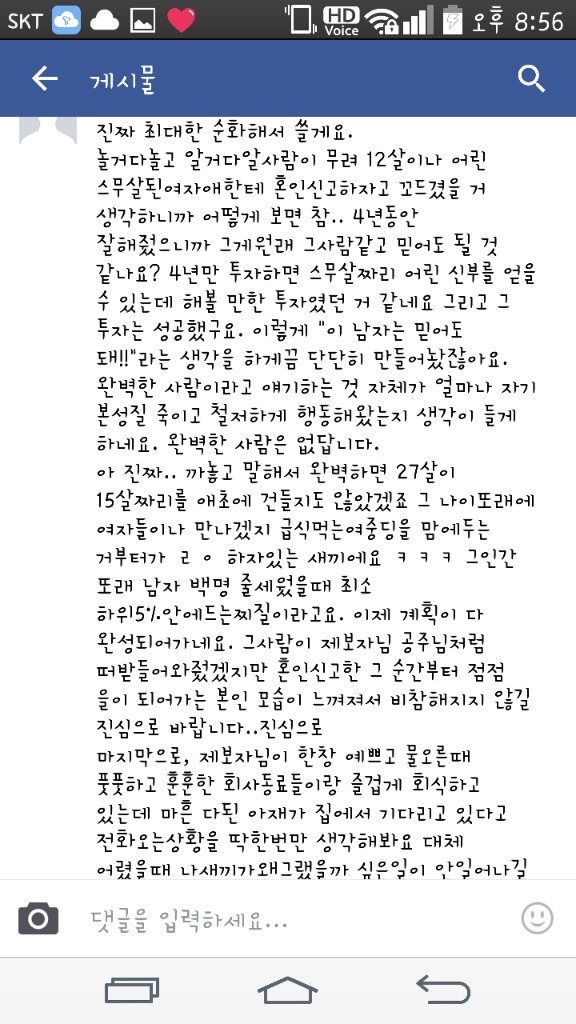 SKT HD Voice 오후 8:56
게시물
진짜 최대한 순화해서 쓸게요.
놀거다놀고 알거다알사람이 무려 12살이나 어린
스무살된여자애한테 혼인신고하자고 꼬드겼을 거
생각하니까 어떻게 보면 참.. 4년동안
잘해줬으니까 그게원래 그사람같고 믿어도 될 것
같나요? 4년만 투자하면 스무살짜리 어린 신부를 얻을
수 있는데 해볼 만한 투자였던 거 같네요 그리고 그
투자는 성공했구요. 이렇게 "이 남자는 믿어도
돼!!"라는 생각을 하게끔 단단히 만들어놨잖아요.
완벽한 사람이라고 얘기하는 것 자체가 얼마나 자기
본성질 죽이고 철저하게 행동해왔는지 생각이 들게
하네요. 완벽한 사람은 없답니다.
아 진짜.. 까놓고 말해서 완벽하면 27살이
15살짜리를 애초에 건들지도 않았겠죠 그 나이또래에
여자들이나 만나겠지 급식먹는여중딩을 맘에두는
거부터가 ㄹㅇ 하자있는 새끼에요 ㅋㅋㅋ 그인간
또래 남자 백명 줄세웠을때 최소
하위5%안에드는찌질이라고요. 이제 계획이 다
완성되어가네요. 그사람이 제보자님 공주님처럼
떠받들어와줬겠지만 혼인신고한 그 순간부터 점점
을이 되어가는 본인 모습이 느껴져서 비참해지지 않길
진심으로 바랍니다..진심으로
마지막으로, 제보자님이 한창 예쁘고 물오른때
풋풋하고 훈훈한 회사동료들이랑 즐겁게 회식하고
있는데 마흔 다된 아재가 집에서 기다리고 있다고
전화오는상황을 딱한번만 생각해봐요 대체
어렸을때 나새끼가왜그랬을까 싶은일이 안일어나길
댓글을 입력하세요...